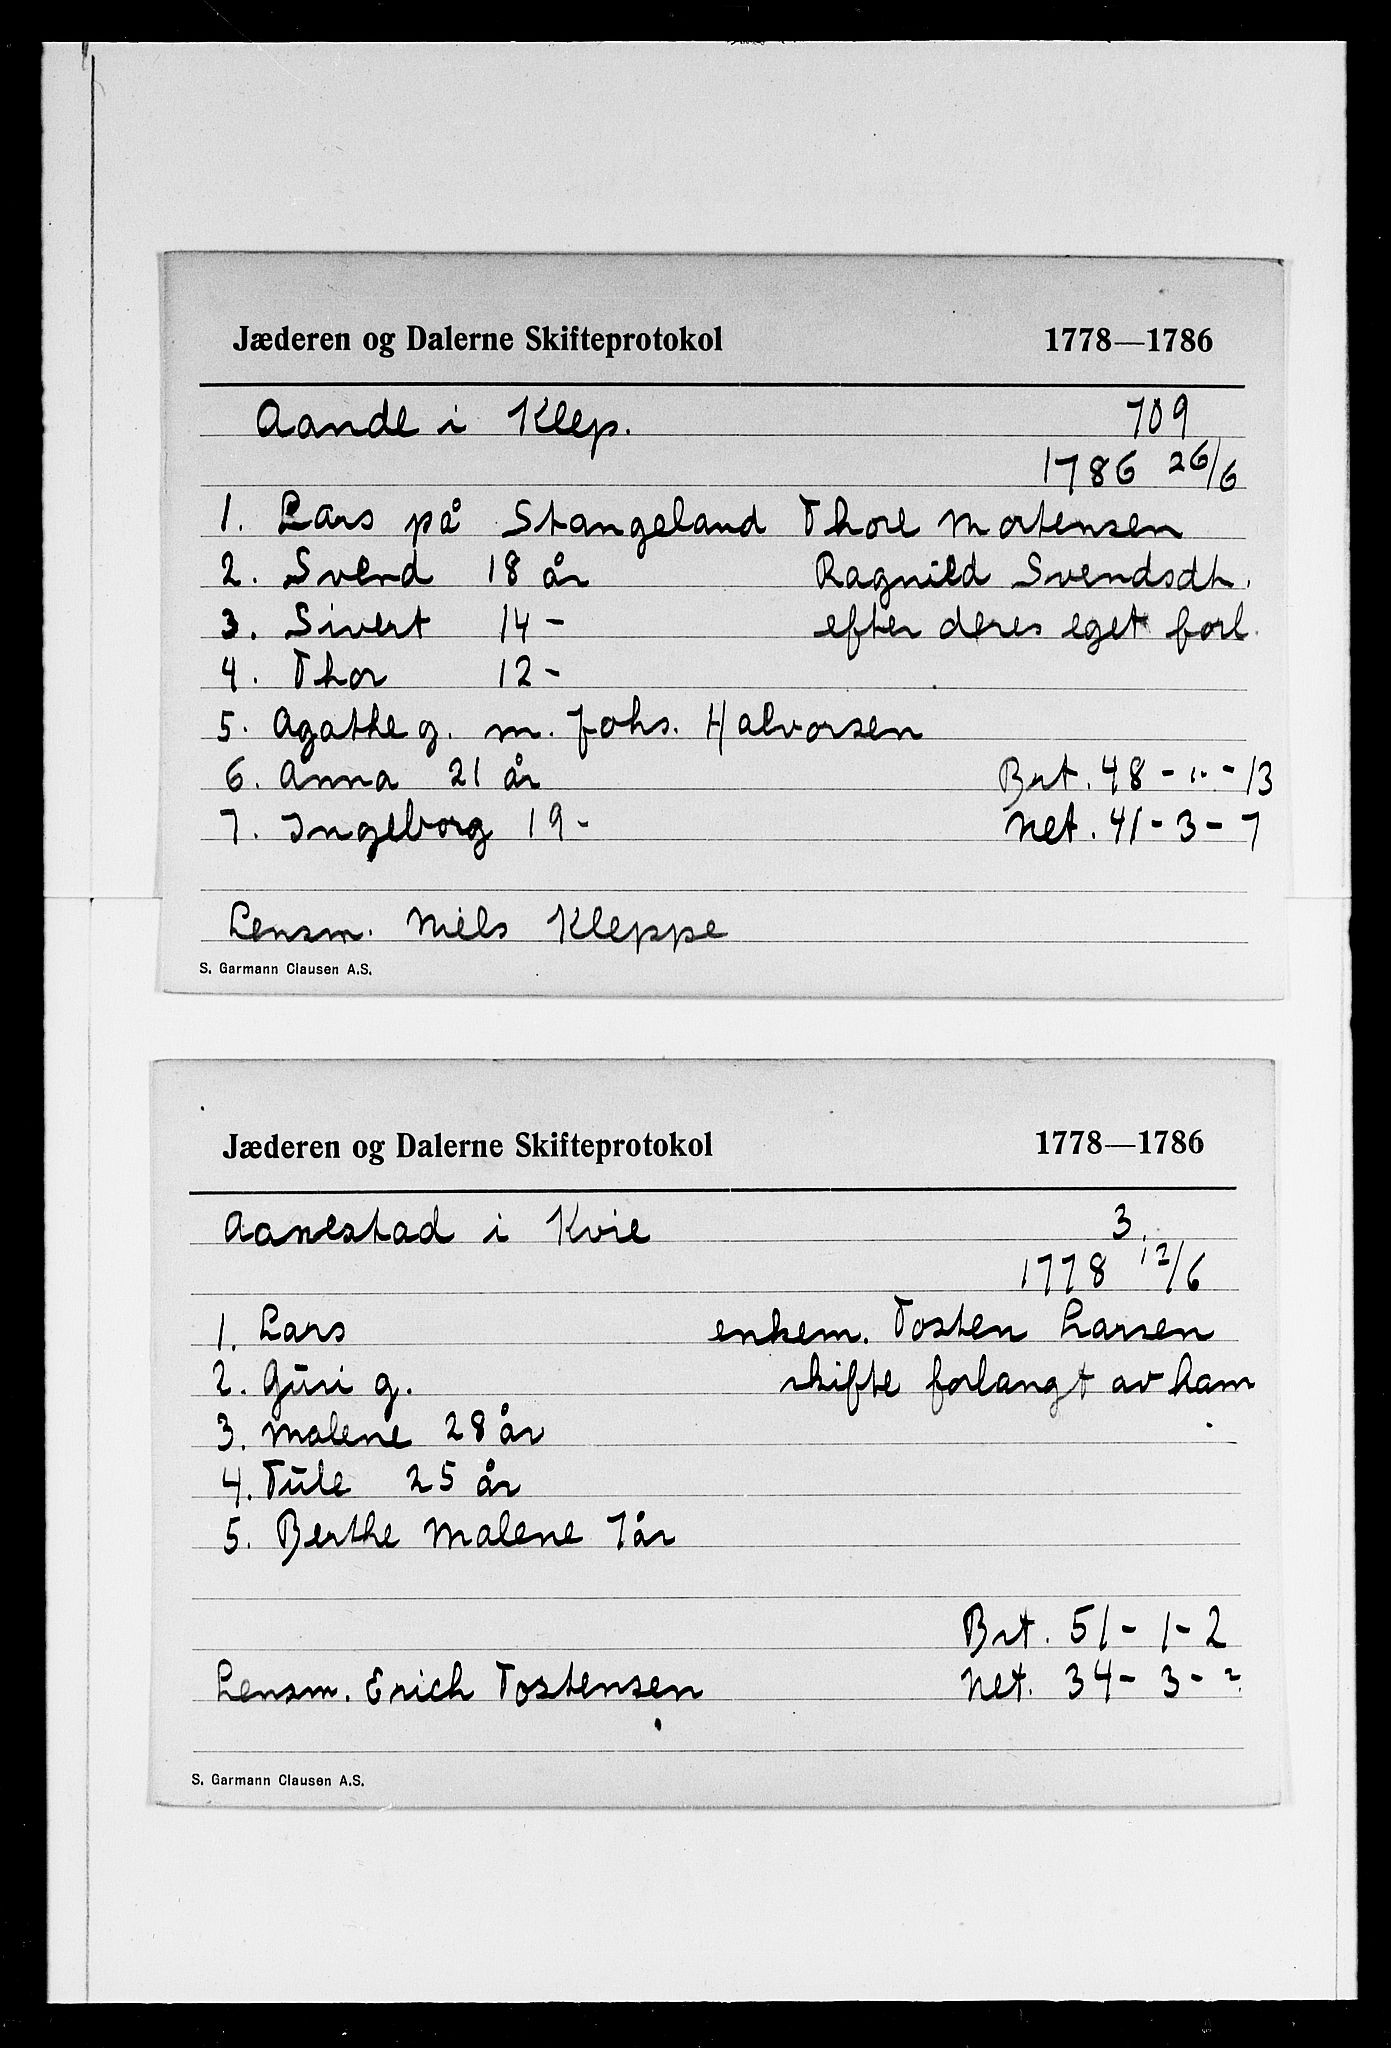 Jæderen og Dalerne Skifteprotokol 1778—1786
Aande i Klep. 709
1786 26/6
1. Lars på Stangeland Thore Mortensen
2. Svend 18 år Ragnild Svendsdt.
3. Sivert 14 - efter deres eget forl.
4. Thor 12 -
5. Agathe g. m. Johs. Halvorsen
6. Anna 21 år Brt. 48 - " - 13
7. Ingeborg 19 - Net. 41 - 3 - 7
Lensm. Niels Kleppe
S. Garmann Clausen A.S.
Jæderen og Dalerne Skifteprotokol 1778—1786
Aanestad i Kvie 3.
1778 12/6
1. Lars enkem. Tosten Larsen
2. Guri g. skifte forlangt av ham
3. Malene 28 år
4. Tule 25 år
5. Berthe Malene 7 år
Brt. 51 - 1 - 2
Lensm. Erich Tostensen Net. 34 - 3 - 2.
S. Garmann Clausen A.S.